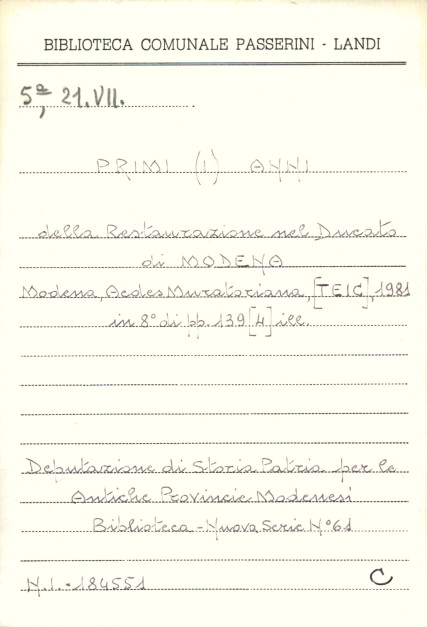 BIBLIOTECA COMUNALE PASSERINI - LANDI
5ª, 21.VII.
PRIMI (I) ANNI
della Restaurazione nel Ducato
di MODENA
Modena, Aedes Muratoriana, [TEIC], 1981
in 8° di pp. 139 [4] ill.
Deputazione di Storia Patria per le
Antiche Provincie Modenesi
Biblioteca - Nuova Serie N° 61
N.I. - 184551
C